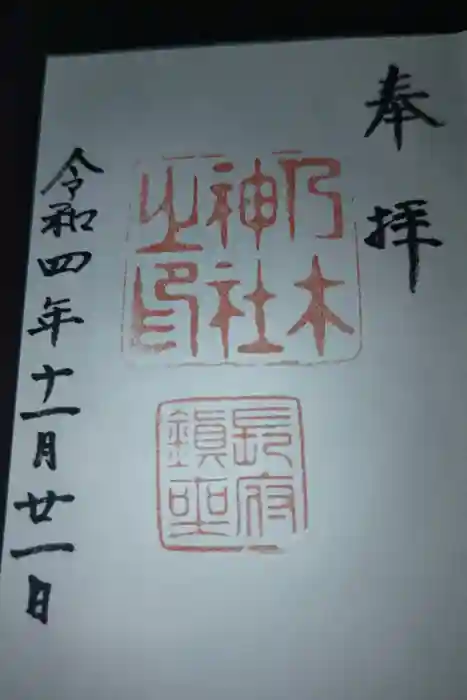 奉拝
乃木
神社
之印
長府
鎮座
令和四年十一月廿一日